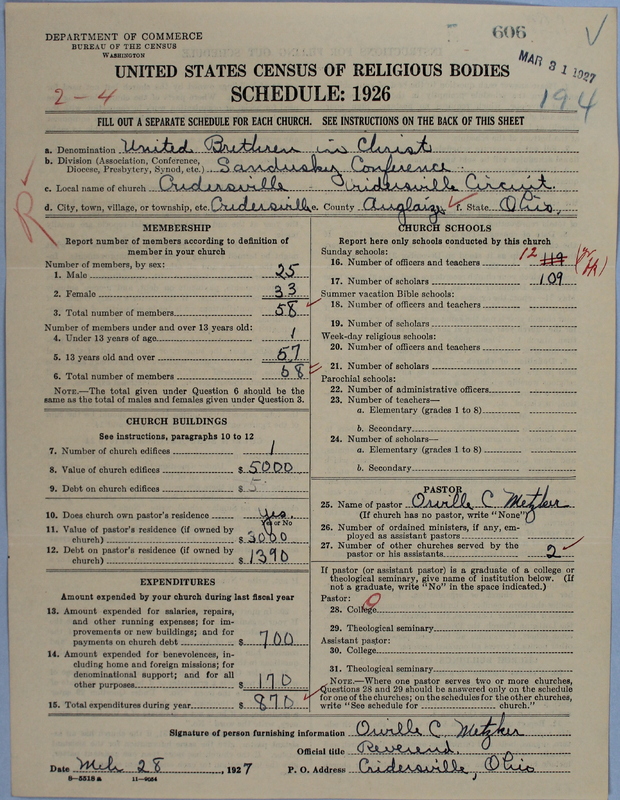 DEPARTMENT OF COMMERCE
BUREAU OF THE CENSUS
WASHINGTON
606
MAR 31 1927
194
2-4
UNITED STATES CENSUS OF RELIGIOUS BODIES
SCHEDULE: 1926
FILL OUT A SEPARATE SCHEDULE FOR EACH CHURCH. SEE INSTRUCTIONS ON THE BACK OF THIS SHEET
a. Denomination United Brethren in Christ
b. Division (Association, Conference, Diocese, Presbytery, Synod, etc.) Sandusky Conference
c. Local name of church Cridersville - Cridersville Circuit.
d. City, town, village, or township, etc. Cridersville e. County Auglaize f. State Ohio,
R
MEMBERSHIP
Report number of members according to definition of
member in your church
Number of members, by sex:
1. Male 25
2. Female 33
3. Total number of members 58
Number of members under and over 13 years old:
4. Under 13 years of age 1
5. 13 years old and over 57
6. Total number of members 58
NOTE.—The total given under Question 6 should be the
same as the total of males and females given under Question 3.
CHURCH BUILDINGS
See instructions, paragraphs 10 to 12
7. Number of church edifices 1
8. Value of church edifices $ 5000
9. Debt on church edifices $
10. Does church own pastor's residence Yes.
Yes or No
11. Value of pastor's residence (if owned by
church) $ 3000
12. Debt on pastor's residence (if owned by
church) $ 1390
EXPENDITURES
Amount expended by your church during last fiscal year
13. Amount expended for salaries, repairs,
and other running expenses; for im-
provements or new buildings; and for
payments on church debt $ 700
14. Amount expended for benevolences, in-
cluding home and foreign missions; for
denominational support; and for all
other purposes $ 170
15. Total expenditures during year $ 870
CHURCH SCHOOLS
Report here only schools conducted by this church
Sunday schools:
16. Number of officers and teachers 12
17. Number of scholars 109
Summer vacation Bible schools:
18. Number of officers and teachers
19. Number of scholars
Week-day religious schools:
20. Number of officers and teachers
21. Number of scholars
Parochial schools:
22. Number of administrative officers
23. Number of teachers—
a. Elementary (grades 1 to 8)
b. Secondary
24. Number of scholars—
a. Elementary (grades 1 to 8)
b. Secondary
PASTOR
25. Name of pastor Orville C Metzker
(If church has no pastor, write "None")
26. Number of ordained ministers, if any, em-
ployed as assistant pastors
27. Number of other churches served by the
pastor or his assistants 2
If pastor (or assistant pastor) is a graduate of a college or
theological seminary, give name of institution below. (If
not a graduate, write "No" in the space indicated.)
Pastor:
28. College
29. Theological seminary
Assistant pastor:
30. College
31. Theological seminary
NOTE.—Where one pastor serves two or more churches,
Questions 28 and 29 should be answered only on the schedule
for one of the churches; on the schedules for the other churches,
write "See schedule for church."
Signature of person furnishing information Orville C. Metzker
Official title Reverend.
Date Mch 28, 1927 P. O. Address Cridersville, Ohio
8-5518a 11-9684